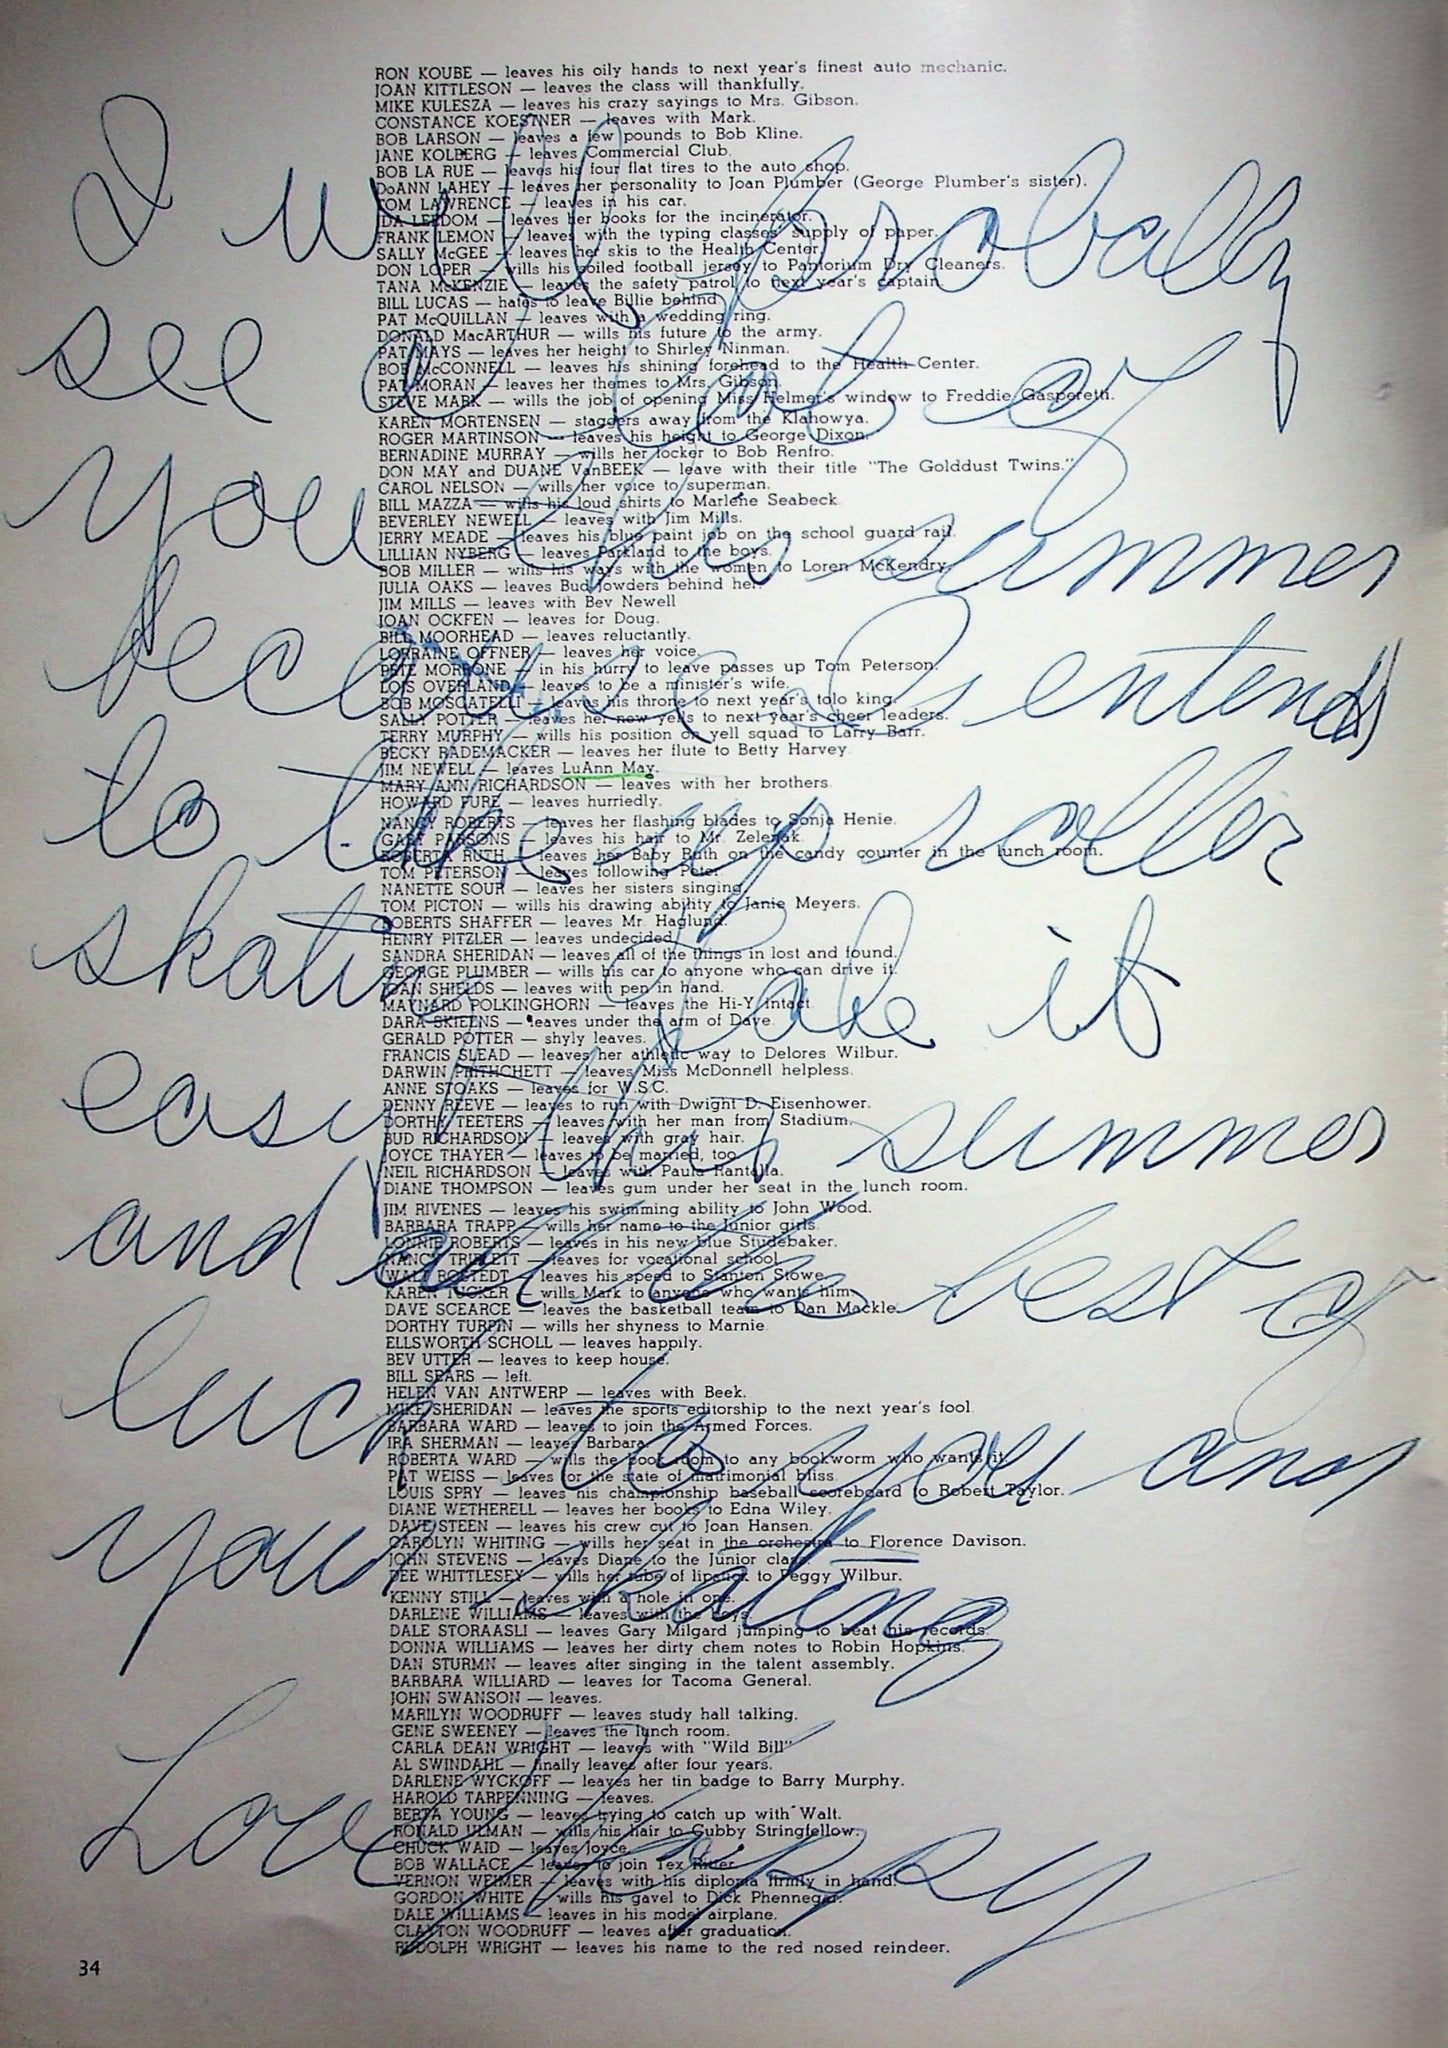 RON KOUBE — leaves his oily hands to next year's finest auto mechanic.
JOAN KITTLESON — leaves the class will thankfully.
MIKE KULESZA — leaves his crazy sayings to Mrs. Gibson.
CONSTANCE KOESTNER — leaves with Mark.
BOB LARSON — leaves a few pounds to Bob Kline.
JANE KOLBERG — leaves Commercial Club.
BOB LA RUE — leaves his four flat tires to the auto shop.
DoANN LAHEY — leaves her personality to Joan Plumber (George Plumber's sister).
TOM LAWRENCE — leaves in his car.
IDA LEEDOM — leaves her books for the incinerator.
FRANK LEMON — leaves with the typing classes' supply of paper.
SALLY McGEE — leaves her skis to the Health Center.
DON LOPER — wills his soiled football jersey to Pantorium Dry Cleaners.
TANA McKENZIE — leaves the safety patrol to next year's captain.
BILL LUCAS — hates to leave Billie behind.
PAT McQUILLAN — leaves with a wedding ring.
DONALD MacARTHUR — wills his future to the army.
PAT MAYS — leaves her height to Shirley Ninman.
BOB McCONNELL — leaves his shining forehead to the Health Center.
PAT MORAN — leaves her themes to Mrs. Gibson.
STEVE MARK — wills the job of opening Miss Helmer's window to Freddie Gasperetti.
KAREN MORTENSEN — staggers away from the Klahowya.
ROGER MARTINSON — leaves his height to George Dixon.
BERNADINE MURRAY — wills her locker to Bob Renfro.
DON MAY and DUANE VanBEEK — leave with their title "The Golddust Twins."
CAROL NELSON — wills her voice to superman.
BILL MAZZA — wills his loud shirts to Marlene Seabeck.
BEVERLEY NEWELL — leaves with Jim Mills.
JERRY MEADE — leaves his blue paint job on the school guard rail.
LILLIAN NYBERG — leaves Parkland to the boys.
BOB MILLER — wills his ways with the women to Loren McKendry.
JULIA OAKS — leaves Bud Jowders behind her.
JIM MILLS — leaves with Bev Newell
JOAN OCKFEN — leaves for Doug.
BILL MOORHEAD — leaves reluctantly.
LORRAINE OFFNER — leaves her voice.
PETE MORRONE — in his hurry to leave passes up Tom Peterson.
LOIS OVERLAND — leaves to be a minister's wife.
BOB MOSCATELLI — leaves his throne to next year's tolo king.
SALLY POTTER — leaves her new yells to next year's cheer leaders.
TERRY MURPHY — wills his position on yell squad to Larry Barr.
BECKY RADEMACKER — leaves her flute to Betty Harvey.
JIM NEWELL — leaves LuAnn May.
MARY ANN RICHARDSON — leaves with her brothers.
HOWARD FURE — leaves hurriedly.
NANCY ROBERTS — leaves her flashing blades to Sonja Henie.
GARY PARSONS — leaves his hair to Mr. Zelenak.
ROBERTA RUTH — leaves her Baby Ruth on the candy counter in the lunch room.
TOM PETERSON — leaves following Pete.
NANETTE SOUR — leaves her sisters singing.
TOM PICTON — wills his drawing ability to Janie Meyers.
ROBERTS SHAFFER — leaves Mr. Haglund.
HENRY PITZLER — leaves undecided.
SANDRA SHERIDAN — leaves all of the things in lost and found.
GEORGE PLUMBER — wills his car to anyone who can drive it.
JOAN SHIELDS — leaves with pen in hand.
MAYNARD POLKINGHORN — leaves the Hi-Y intact.
DARA SKIEENS — leaves under the arm of Dave.
GERALD POTTER — shyly leaves.
FRANCIS SLEAD — leaves her athletic way to Delores Wilbur.
DARWIN PRITHCHETT — leaves Miss McDonnell helpless.
ANNE STOAKS — leaves for W.S.C.
DENNY REEVE — leaves to run with Dwight D. Eisenhower.
DORTHY TEETERS — leaves with her man from Stadium.
BUD RICHARDSON — leaves with gray hair.
JOYCE THAYER — leaves to be married, too.
NEIL RICHARDSON — leaves with Paula Rantalla.
DIANE THOMPSON — leaves gum under her seat in the lunch room.
JIM RIVENES — leaves his swimming ability to John Wood.
BARBARA TRAPP — wills her name to the Junior girls.
LONNIE ROBERTS — leaves in his new blue Studebaker.
NANCY TRIPLETT — leaves for vocational school.
WALT ROSTEDT — leaves his speed to Stanton Stowe.
KAREN TUCKER — wills Mark to anyone who wants him.
DAVE SCEARCE — leaves the basketball team to Dan Mackle.
DORTHY TURPIN — wills her shyness to Marnie.
ELLSWORTH SCHOLL — leaves happily.
BEV UTTER — leaves to keep house.
BILL SEARS — left.
HELEN VAN ANTWERP — leaves with Beek.
MIKE SHERIDAN — leaves the sports editorship to the next year's fool.
BARBARA WARD — leaves to join the Armed Forces.
IRA SHERMAN — leaves Barbara.
ROBERTA WARD — wills the book room to any bookworm who wants it.
PAT WEISS — leaves for the state of matrimonial bliss.
LOUIS SPRY — leaves his championship baseball scoreboard to Robert Taylor.
DIANE WETHERELL — leaves her books to Edna Wiley.
DAVE STEEN — leaves his crew cut to Joan Hansen.
CAROLYN WHITING — wills her seat in the orchestra to Florence Davison.
JOHN STEVENS — leaves Diane to the Junior class.
DEE WHITTLESEY — wills her tube of lipstick to Peggy Wilbur.
KENNY STILL — leaves with a hole in one.
DARLENE WILLIAMS — leaves with the boys.
DALE STORAASLI — leaves Gary Milgard jumping to beat his records.
DONNA WILLIAMS — leaves her dirty chem notes to Robin Hopkins.
DAN STURMN — leaves after singing in the talent assembly.
BARBARA WILLIARD — leaves for Tacoma General.
JOHN SWANSON — leaves.
MARILYN WOODRUFF — leaves study hall talking.
GENE SWEENEY — leaves the lunch room.
CARLA DEAN WRIGHT — leaves with "Wild Bill"
AL SWINDAHL — finally leaves after four years.
DARLENE WYCKOFF — leaves her tin badge to Barry Murphy.
HAROLD TARPENNING — leaves.
BERTA YOUNG — leaves trying to catch up with Walt.
RONALD ULMAN — wills his hair to Cubby Stringfellow.
CHUCK WAID — leaves Joyce.
BOB WALLACE — leaves to join Tex Ritter.
VERNON WEIMER — leaves with his diploma firmly in hand.
GORDON WHITE — wills his gavel to Dick Phennegar.
DALE WILLIAMS — leaves in his model airplane.
CLAYTON WOODRUFF — leaves after graduation.
RUDOLPH WRIGHT — leaves his name to the red nosed reindeer.
34
I will probally
see a lot of
you this summer
because I entend
to take up roller
skating. Take it
easy this summer
and all the best of
luck to you and
your skating
Love